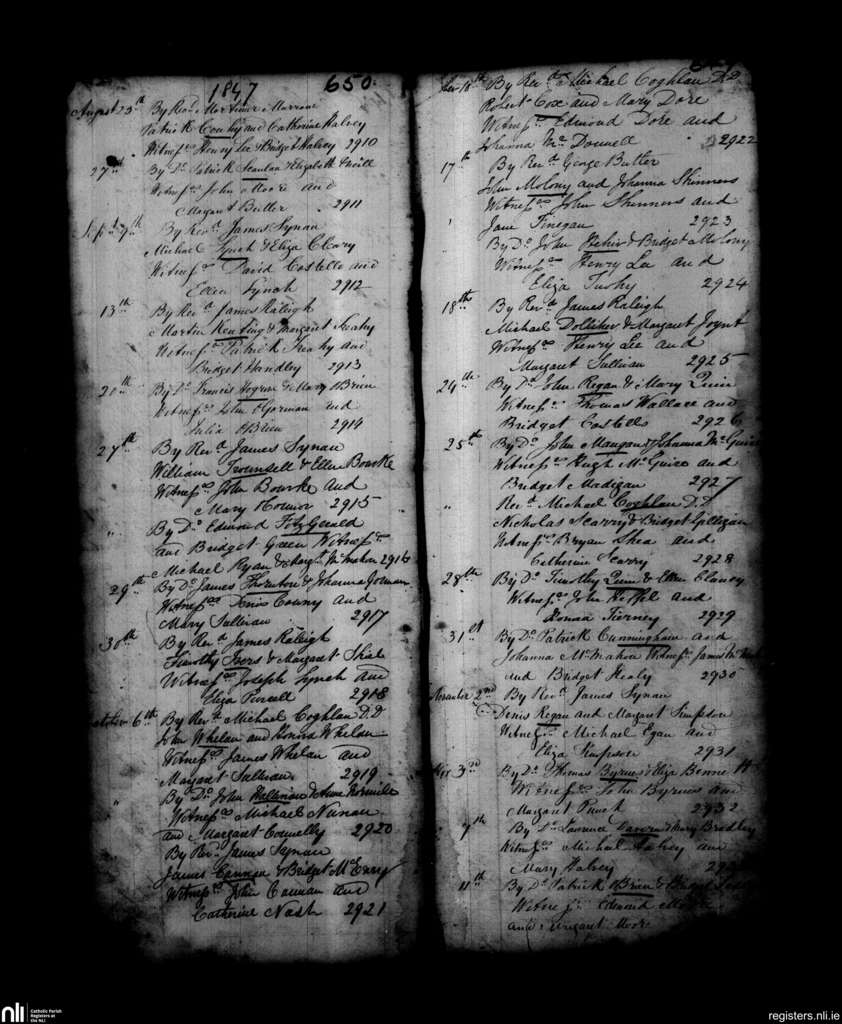 1847 650
August 23th By Revd Mortimer
Patrick and Catherine Halvey
Witnesses Henry Lee & Bridget Halvey 2910
27th By Do Patrick Scanlan & Elizabeth
Witnesses John Moore and
Margaret Butler 2911
Sept 9th By Revd James Synan
Michael Lynch & Eliza Cleary
Witnesses David Costello and
Ellen Lynch 2912
13th By Revd James Raleigh
Martin Keating & Margaret Treahy
Witnesses Patrick Treahy and
Bridget Handley 2913
By Do Francis Hogan & Mary OBrien
Witnesses John OGorman and
Julia OBrien 2914
27th By Revd James Synan
William & Ellen Bourke
Witnesses John Bourke and
Mary Connor 2915
" By Do Edmond FitzGerald
and Bridget Green Witnesses
Michael Ryan & Margt McMahon 2916
29th By Do James Thornton & Johanna Gorman
Witnesses Denis and
Mary Sullivan 2917
30th By Revd James Raleigh
Timothy & Margaret Shiel
Witnesses Joseph Lynch and
Eliza Purcell 2918
October 6th By Revd Michael Coghlan DD
John Whelan and Honora Whelan
Witnesses James Whelan and
Margaret Sullivan 2919
" By Do John Hallinan & Anne
Witnesses Michael Nunan
and Margaret Connelly 2920
By Revd James Synan
James & Bridget McEnry
Witnesses John and
Catherine Nash 2921
By Revd Michael Coghlan DD
Robert Coxe and Mary Dore
Witnesses Edmond Dore and
Johanna McDonnell 2922
17th By Revd George Butler
John Molony and Johanna Skinners
Witnesses John Skinners and
Jane Finegan 2923
By Do John & Bridget Molony
Witnesses Henry Lee and
Eliza 2924
18th By Revd James Raleigh
Michael Dolliher & Margaret Joynt
Witnesses Henry Lee and
Margaret Sullivan 2925
24th By Do John Regan & Mary Quin
Witnesses Thomas Wallace and
Bridget Costello 2926
25th By Do John Mangan & Johanna McGuire
Witnesses Hugh McGuire and
Bridget Madigan 2927
" Revd Michael Coghlan DD
Nicholas Scarry & Bridget Gilligan
Witnesses Bryan Shea and
Catherine Scarry 2928
28th By Do Timothy Quin & Ellen Clancy
Witnesses John and
Honora Tierney 2929
31st By Do Patrick Cunningham and
Johanna McMahon Witnesses James
and Bridget Healy 2930
November 2nd By Revd James Synan
Denis Regan and Margaret Simpson
Witnesses Michael Egan and
Eliza Simpson 2931
Nov 3rd By Do Thomas Byrnes & Eliza
Witnesses John Byrnes and
Margaret Punch 2932
7th By Do Laurence & Mary Bradley
Witnesses Michael Halvey and
Mary Halvey
11th By Do Patrick OBrien & Bridget
Witnesses Edmond Moore
and Margaret Moore
nli Catholic Parish
Registers at
the NLI
registers.nli.ie